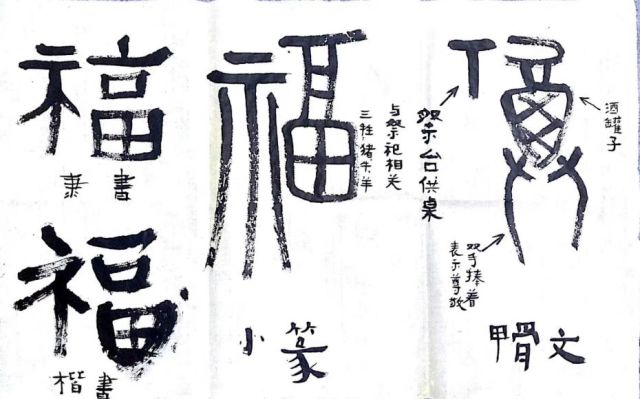 福
隶書
福
楷書
福
与祭祀相关
三牲猪牛羊
小篆
祭台供桌
酒罐子
双手捧着
表示尊敬
甲骨文